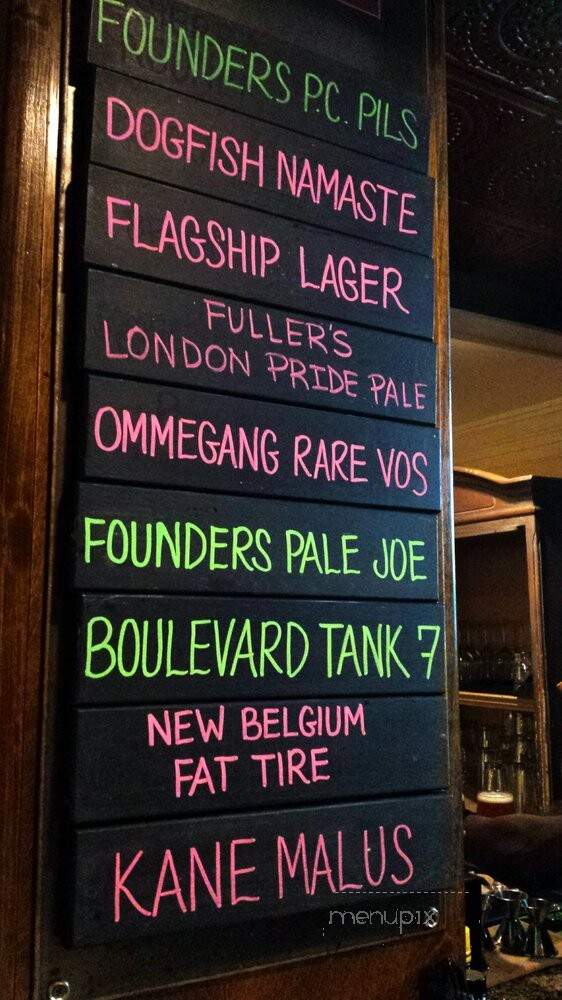 FOUNDERS P.C. PILS
DOGFISH NAMASTE
FLAGSHIP LAGER
FULLER'S
LONDON PRIDE PALE
OMMEGANG RARE VOS
FOUNDERS PALE JOE
BOULEVARD TANK 7
NEW BELGIUM
FAT TIRE
KANE MALUS
menupix